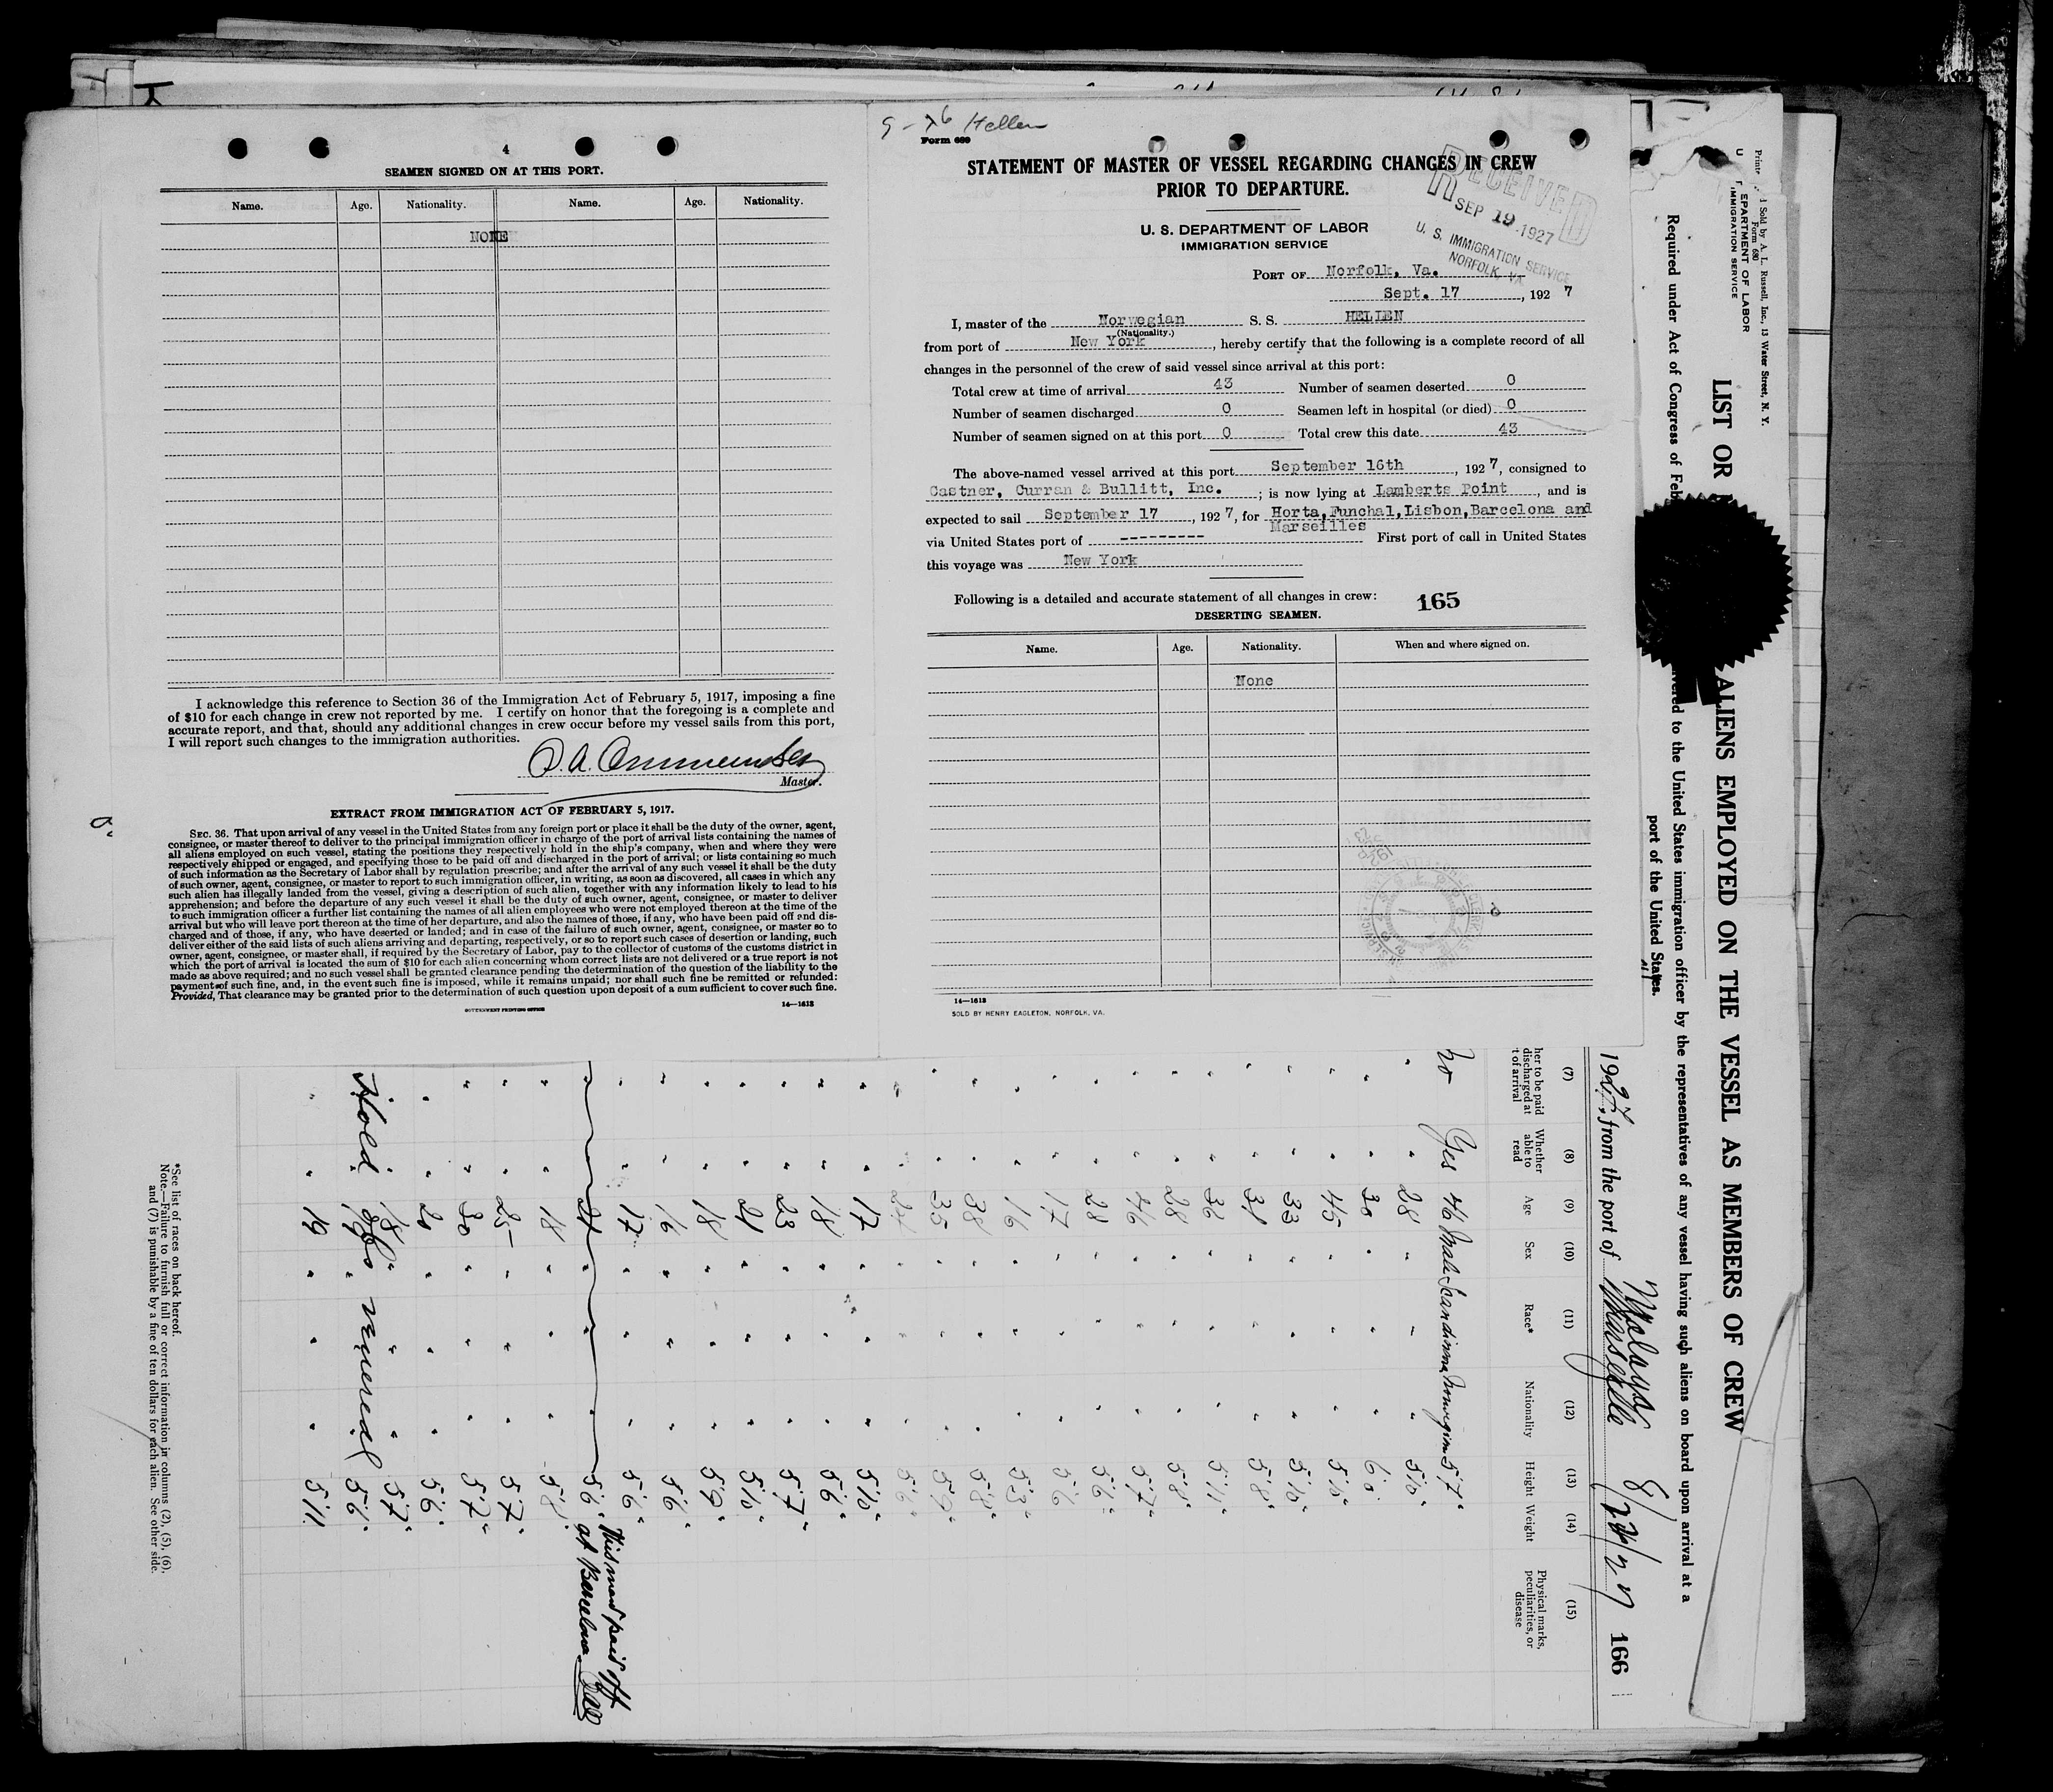 4
SEAMEN SIGNED ON AT THIS PORT.
Name. Age. Nationality. Name. Age. Nationality.
NONE
I acknowledge this reference to Section 36 of the Immigration Act of February 5, 1917, imposing a fine
of $10 for each change in crew not reported by me. I certify on honor that the foregoing is a complete and
accurate report, and that, should any additional changes in crew occur before my vessel sails from this port,
I will report such changes to the immigration authorities.
Master.
EXTRACT FROM IMMIGRATION ACT OF FEBRUARY 5, 1917.
SEC. 36. That upon arrival of any vessel in the United States from any foreign port or place it shall be the duty of the owner, agent,
consignee, or master thereof to deliver to the principal immigration officer in charge of the port of arrival lists containing the names of
all aliens employed on such vessel, stating the positions they respectively hold in the ship's company, when and where they were
respectively shipped or engaged, and specifying those to be paid off and discharged in the port of arrival; or lists containing so much
of such information as the Secretary of Labor shall by regulation prescribe; and after the arrival of any such vessel it shall be the duty
of such owner, agent, consignee, or master to report to such immigration officer, in writing, as soon as discovered, all cases in which any
such alien has illegally landed from the vessel, giving a description of such alien, together with any information likely to lead to his
apprehension; and before the departure of any such vessel it shall be the duty of such owner, agent, consignee, or master to deliver
to such immigration officer a further list containing the names of all alien employees who were not employed thereon at the time of the
arrival but who will leave port thereon at the time of her departure, and also the names of those, if any, who have been paid off and dis-
charged and of those, if any, who have deserted or landed; and in case of the failure of such owner, agent, consignee, or master so to
deliver either of the said lists of such aliens arriving and departing, respectively, or so to report such cases of desertion or landing, such
owner, agent, consignee, or master shall, if required by the Secretary of Labor, pay to the collector of customs of the customs district in
which the port of arrival is located the sum of $10 for each alien concerning whom correct lists are not delivered or a true report is not
made as above required; and no such vessel shall be granted clearance pending the determination of the question of the liability to the
payment of such fine, and, in the event such fine is imposed, while it remains unpaid; nor shall such fine be remitted or refunded:
Provided, That clearance may be granted prior to the determination of such question upon deposit of a sum sufficient to cover such fine.
GOVERNMENT PRINTING OFFICE
14—1613
Hellen
Form 689
STATEMENT OF MASTER OF VESSEL REGARDING CHANGES IN CREW
PRIOR TO DEPARTURE.
RECEIVED
SEP 19 1927
U. S. IMMIGRATION SERVICE
NORFOLK, VA
U. S. DEPARTMENT OF LABOR
IMMIGRATION SERVICE
PORT OF Norfolk, Va.
Sept. 17, 1927
I, master of the Norwegian S. S. HELLEN
(Nationality.)
from port of New York, hereby certify that the following is a complete record of all
changes in the personnel of the crew of said vessel since arrival at this port:
Total crew at time of arrival 43 Number of seamen deserted 0
Number of seamen discharged 0 Seamen left in hospital (or died) 0
Number of seamen signed on at this port 0 Total crew this date 43
The above-named vessel arrived at this port September 16th, 1927, consigned to
Castner, Curran & Bullitt, Inc.; is now lying at Lamberts Point, and is
expected to sail September 17, 1927, for Horta, Funchal, Lisbon, Barcelona and
Marseilles
via United States port of --------- First port of call in United States
this voyage was New York
Following is a detailed and accurate statement of all changes in crew:
165
DESERTING SEAMEN.
Name. Age. Nationality. When and where signed on.
None
14—1613
SOLD BY HENRY EAGLETON, NORFOLK, VA.
Printe d Sold by A. L. Russell, Inc., 13 Water Street, N. Y.
Form 680
U EPARTMENT OF LABOR
IMMIGRATION SERVICE
LIST OR ALIENS EMPLOYED ON THE VESSEL AS MEMBERS OF CREW
Required under Act of Congress of Feb vered to the United States immigration officer by the representatives of any vessel having such aliens on board upon arrival at a
port of the United States.
1927, from the port of Marseille 166
(7) (8) (9) (10) (11) (12) (13) (14) (15)
her to be paid
discharged at
t of arrival
Whether
able to
read
Age
Sex
Race*
Nationality
Height
Weight
Physical marks,
peculiarities, or
disease
No Yes 46 Male Scandinav Norwegian 5'7"
28 5'10"
30 6'0"
45 5'10"
33 5'10"
31 5'8"
36 5'11"
28 5'8"
46 5'7"
28 5'6"
17 5'6
16 5'3"
38 5'8"
35 5'9"
24 5'6"
17 5'10"
18 5'6"
23 5'7"
21 5'10"
18 5'9"
16 5'6"
17 5'6"
This man paid off
at Barcelona
21 5'6"
18 5'8"
25 5'7"
30 5'7"
20 5'6"
18 5'7"
Hold obs venereal
19 5'6"
19 5'11
*See list of races on back hereof.
Note.—Failure to furnish full or correct information in columns (2), (5), (6),
and (7) is punishable by a fine of ten dollars for each alien. See other side.